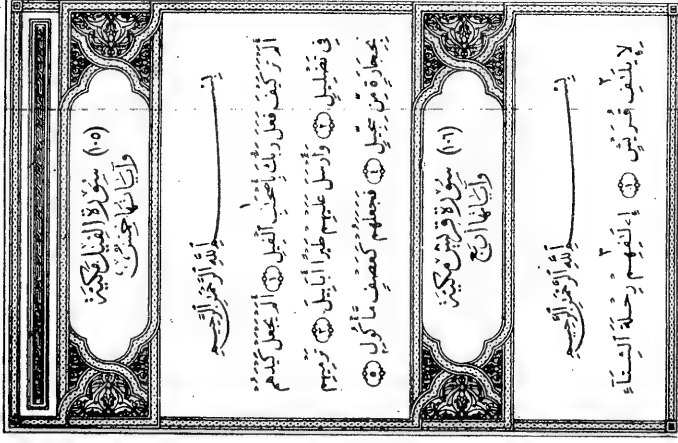 (١٠٥) سُورَةُ الفِيلِ مَكِّيَّة
وَآيَاتُهَا خَمْسٌ
بِسْمِ ٱللَّهِ ٱلرَّحْمَٰنِ ٱلرَّحِيمِ
أَلَمْ تَرَ كَيْفَ فَعَلَ رَبُّكَ بِأَصْحَٰبِ ٱلْفِيلِ ١ أَلَمْ يَجْعَلْ كَيْدَهُمْ
فِى تَضْلِيلٍ ٢ وَأَرْسَلَ عَلَيْهِمْ طَيْرًا أَبَابِيلَ ٣ تَرْمِيهِم
بِحِجَارَةٍ مِّن سِجِّيلٍ ٤ فَجَعَلَهُمْ كَعَصْفٍ مَّأْكُولٍ ٥
(١٠٦) سُورَةُ قُرَيْشٍ مَكِّيَّة
وَآيَاتُهَا أَرْبَع
بِسْمِ ٱللَّهِ ٱلرَّحْمَٰنِ ٱلرَّحِيمِ
لِإِيلَٰفِ قُرَيْشٍ ١ إِۦلَٰفِهِمْ رِحْلَةَ ٱلشِّتَآءِ